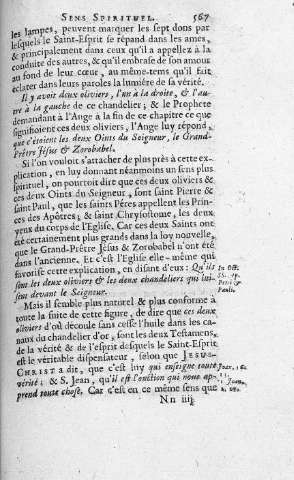 SENS SPIRITUEL. 567
les lampes, peuvent marquer les sept dons par
lesquels le Saint-Esprit se répand dans les ames,
& principalement dans ceux qu'il a appellez à la
conduite des autres, & qu'il embrase de son amour
au fond de leur cœur, au même-tems qu'il fait
éclater dans leurs paroles la lumiére de sa vérité.
Il y avoit deux oliviers, l'un à la droite, & l'au-
tre à la gauche de ce chandelier; & le Prophete
demandant à l'Ange à la fin de ce chapitre ce que
signifioient ces deux oliviers, l'Ange luy répond,
que c'étoient les deux Oints du Seigneur, le Grand-
Prêtre Jésus & Zorobabel.
Si l'on vouloit s'attacher de plus près à cette ex-
plication, en luy donnant néanmoins un sens plus
spirituel, on pourroit dire que ces deux oliviers &
ces deux Oints du Seigneur, sont saint Pierre &
saint Paul, que les saints Péres appellent les Prin-
ces des Apôtres; & saint Chrysostome, les deux
yeux du corps de l'Eglise. Car ces deux Saints ont
été certainement plus grands dans la loy nouvelle,
que le Grand-Prêtre Jésus & Zorobabel n'ont été
dans l'ancienne. Et c'est l'Eglise elle-même qui
favorise cette explication, en disant d'eux: Qu'ils
sont les deux oliviers & les deux chandeliers qui lui-
sent devant le Seigneur.
In Off.
SS. Ap.
Petri &
Pauli.
Mais il semble plus naturel & plus conforme à
toute la suite de cette figure, de dire que ces deux
oliviers d'où découle sans cesse l'huile dans les ca-
naux du chandelier d'or, sont les deux Testamens,
de la vérité & de l'esprit desquels le Saint-Esprit
est le véritable dispensateur, selon que JESUS-
CHRIST a dit, que c'est luy qui enseigne toute
vérité; & S. Jean, qu'il est l'onction qui nous ap-
prend toute chose. Car c'est en ce même sens que
Joan. 16.
Nn iiij